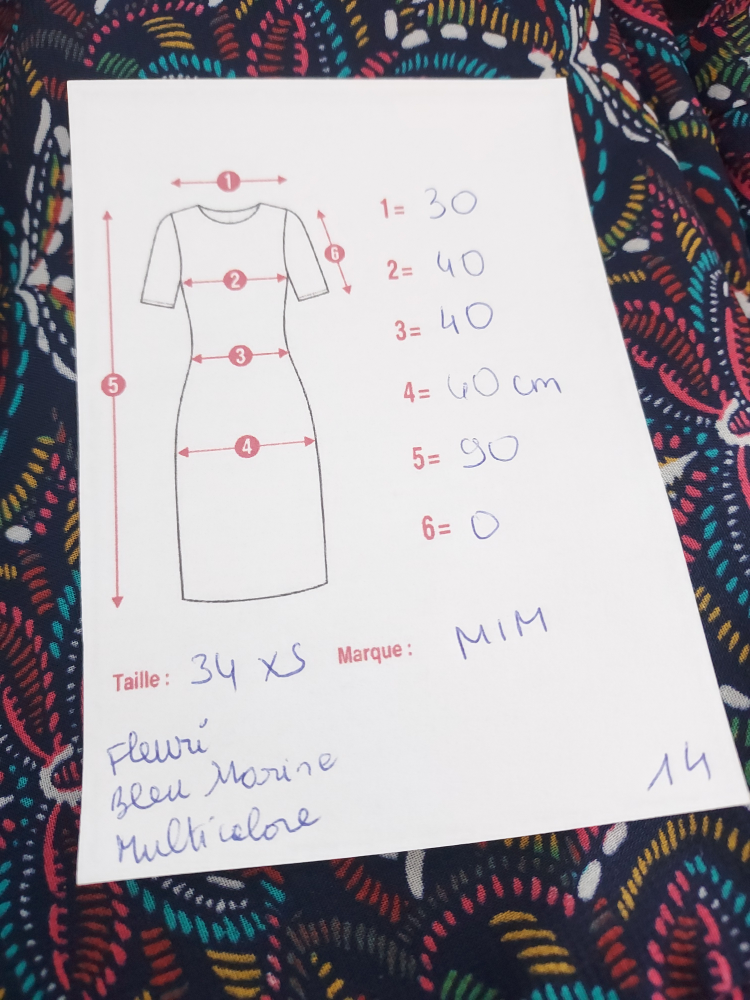 1
6
2
3
5
4
1= 30
2= 40
3= 40
4= 40 cm
5= 90
6= 0
Taille : 34 XS Marque : MIM
Fleuri
Bleu Marine
Multicolore
14